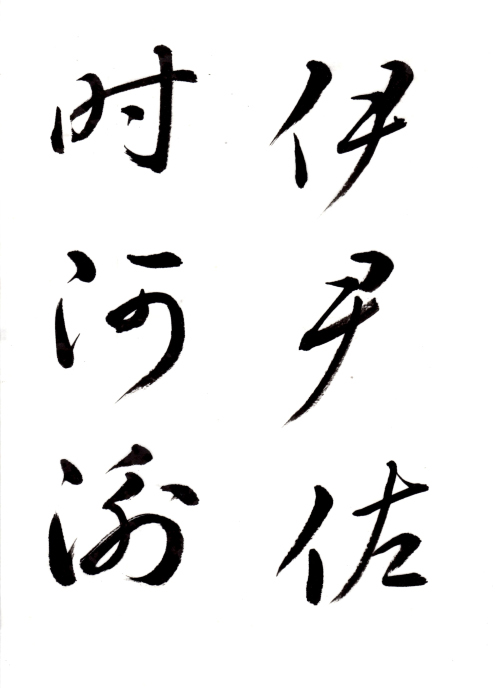 伊尹佐
时阿衡